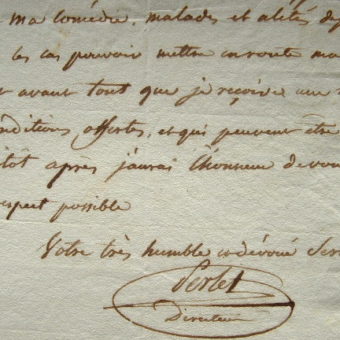 ma comédie, malades et alités de
les cas pouvoir mettre en route ma
avant tout que je reçoive une
conditions offertes, et qui peuvent être
tôt après j'aurai l'honneur de vou
respect possible
Votre très humble et dévoué Ser
Perlet
Directeur